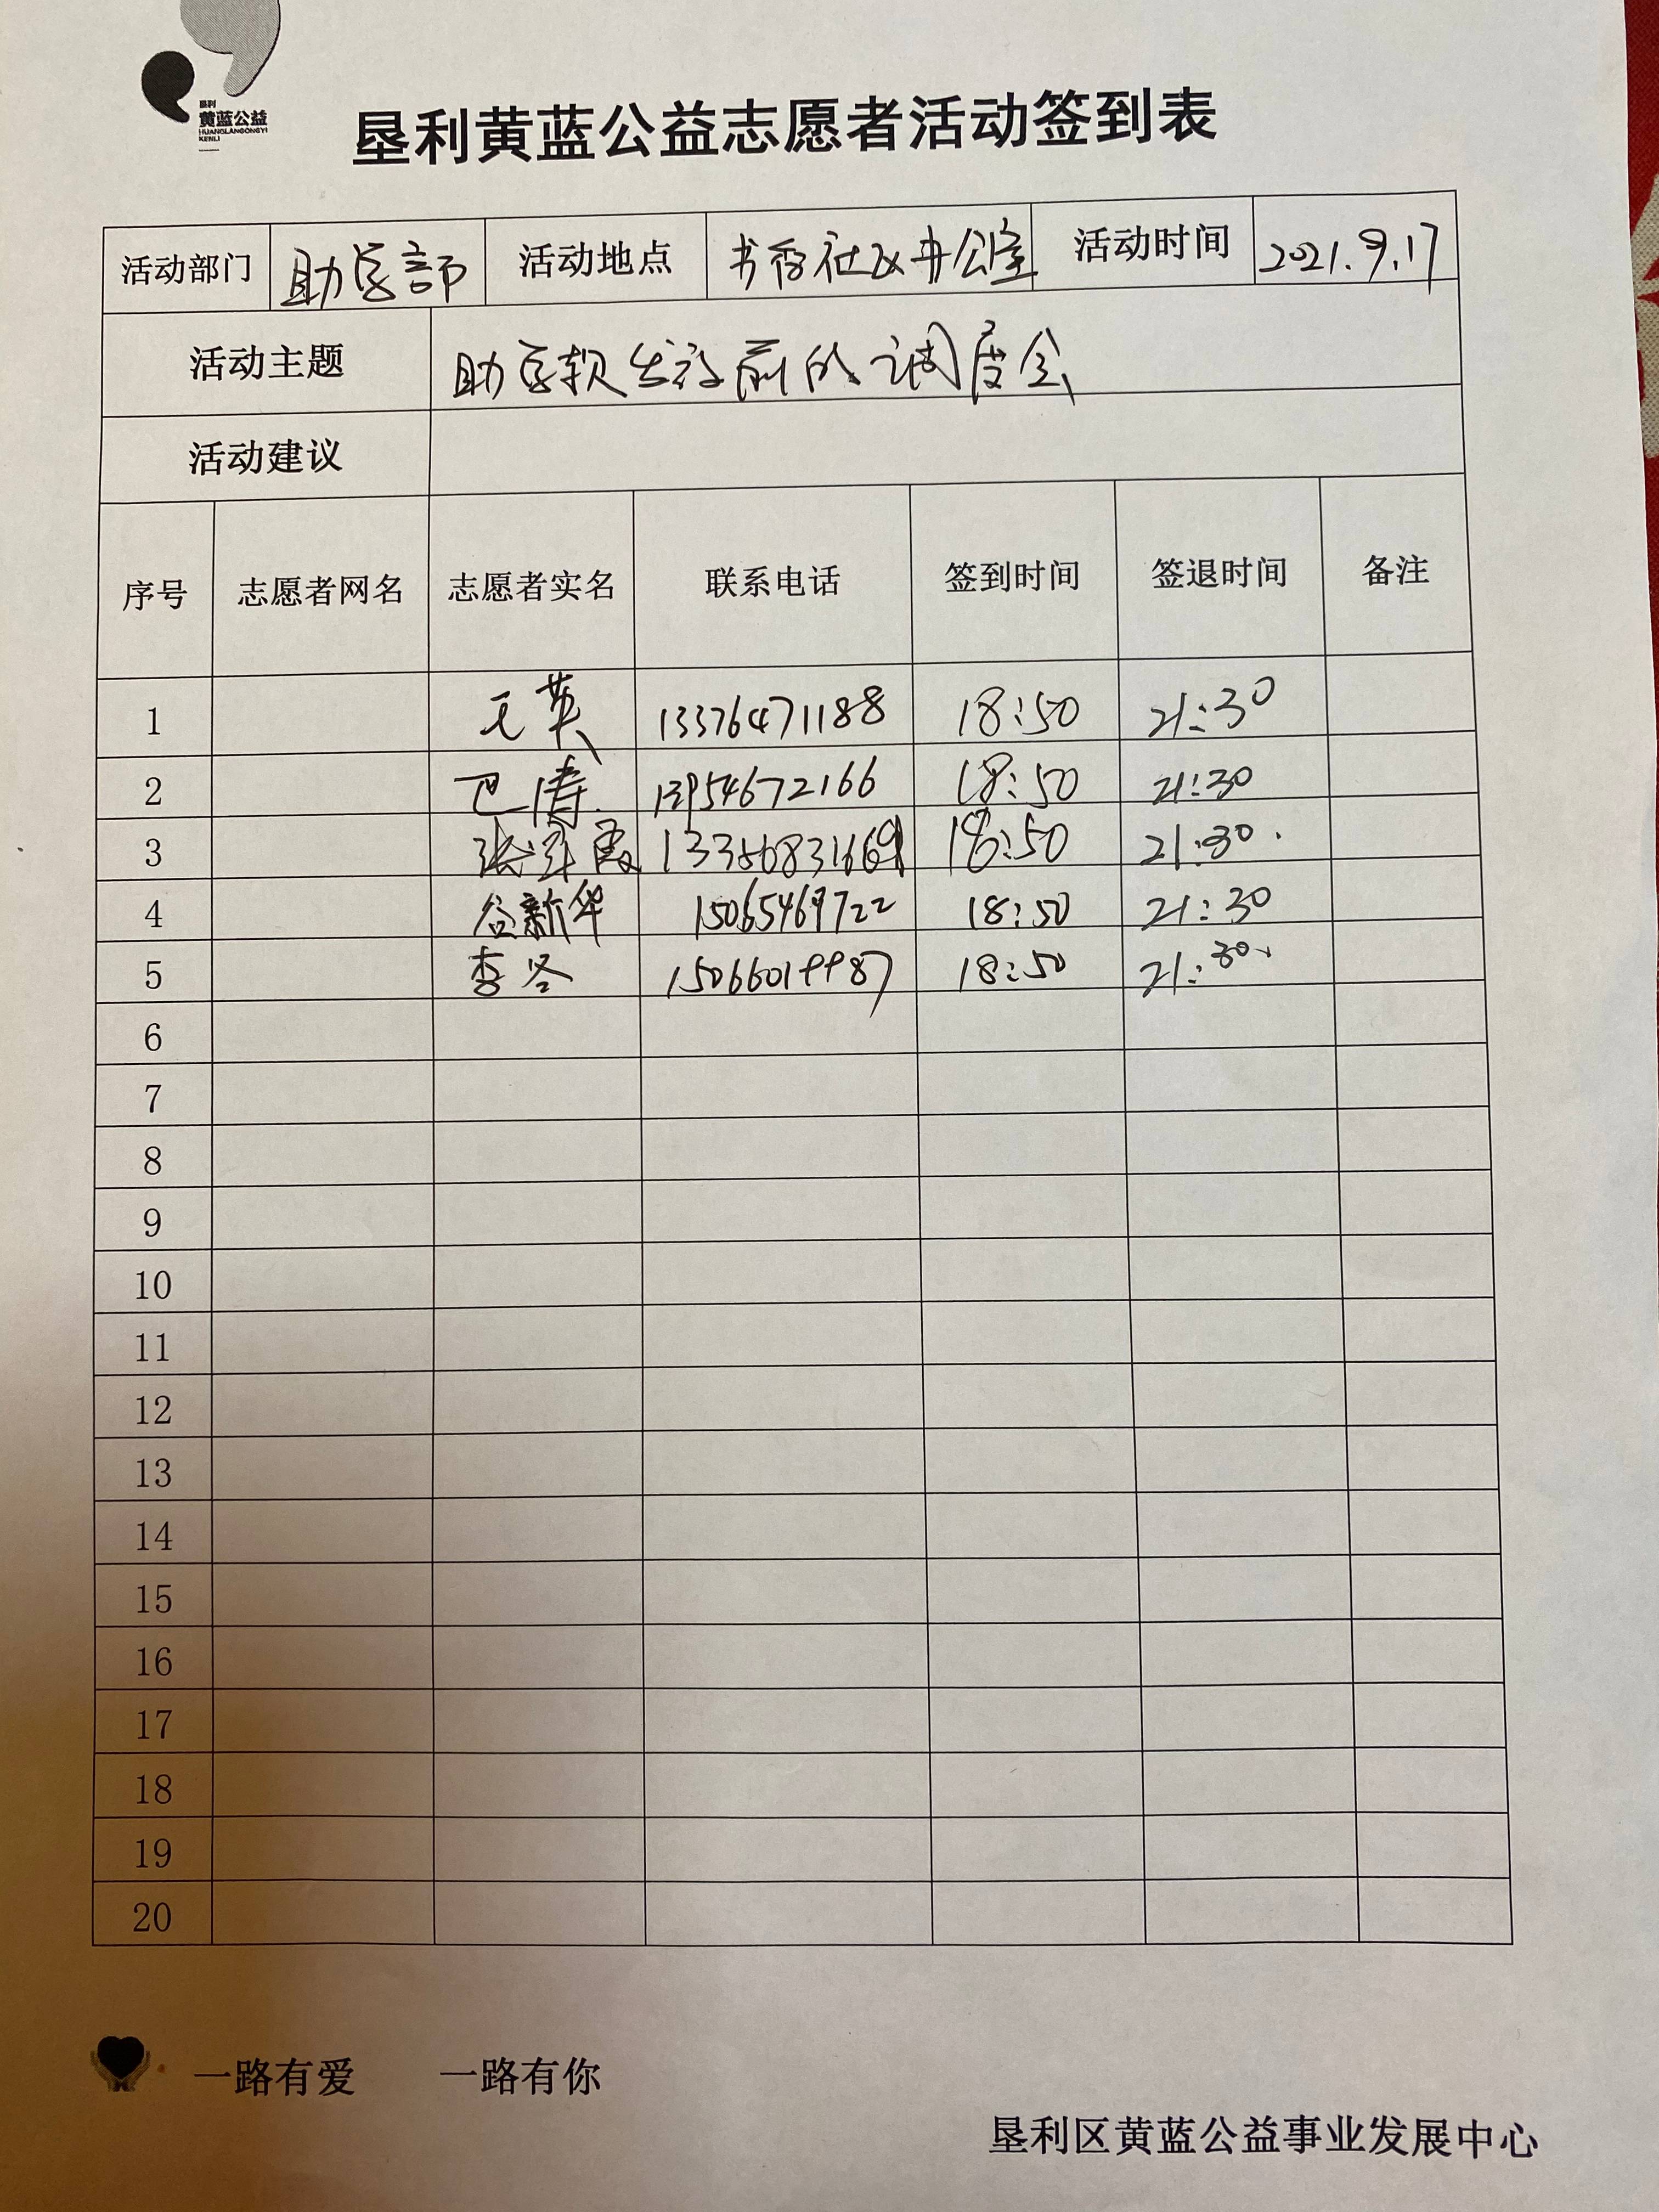 垦利
黄蓝公益
HUANGLANGONGYI
KENLI
垦利黄蓝公益志愿者活动签到表
活动部门 助学部 活动地点 书香社区办公室 活动时间 2021.9.17
活动主题 助学款发放前的调度会
活动建议
序号 志愿者网名 志愿者实名 联系电话 签到时间 签退时间 备注
1 王英 13376471188 18:50 21:30
2 巴涛 13954672166 18:50 21:30
3 张 霞 18:50 21:30
4 谷新华 15065469722 18:50 21:30
5 李冬 15066019987 18:50 21:30
6
7
8
9
10
11
12
13
14
15
16
17
18
19
20
一路有爱 一路有你
垦利区黄蓝公益事业发展中心